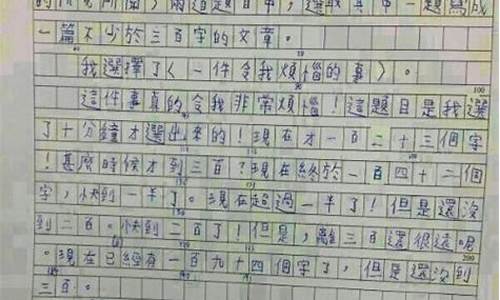 的所見所聞，兩道題目中，選取其中一題寫成
一篇不少於三百字的文章。
我選擇了〈一件令我煩惱的事〉。
100
這件事真的令我非常煩惱！這題目是我選
了十分鐘才選出來的！現在才一百二十三個字
！甚麼時候才到三百？現在終於一百四十二個
字，快到一半了。現在超過一半了！但是還沒
到二百。快到二百了！但是，離三百還很遠呢
200
。現在已經有一百九十四個字了，但是還沒到
三百。